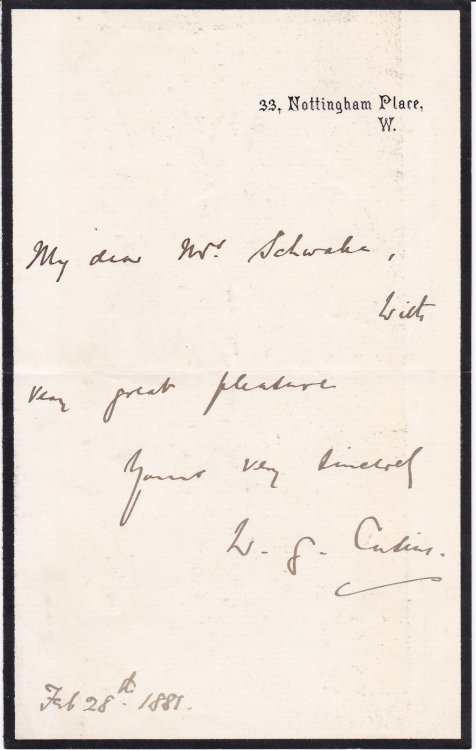 33, Nottingham Place,
W.
My dear Mrs. Schwabe,
With
very great pleasure
Yours very sincerely
W. G. Cusins.
Feb 28th. 1881.